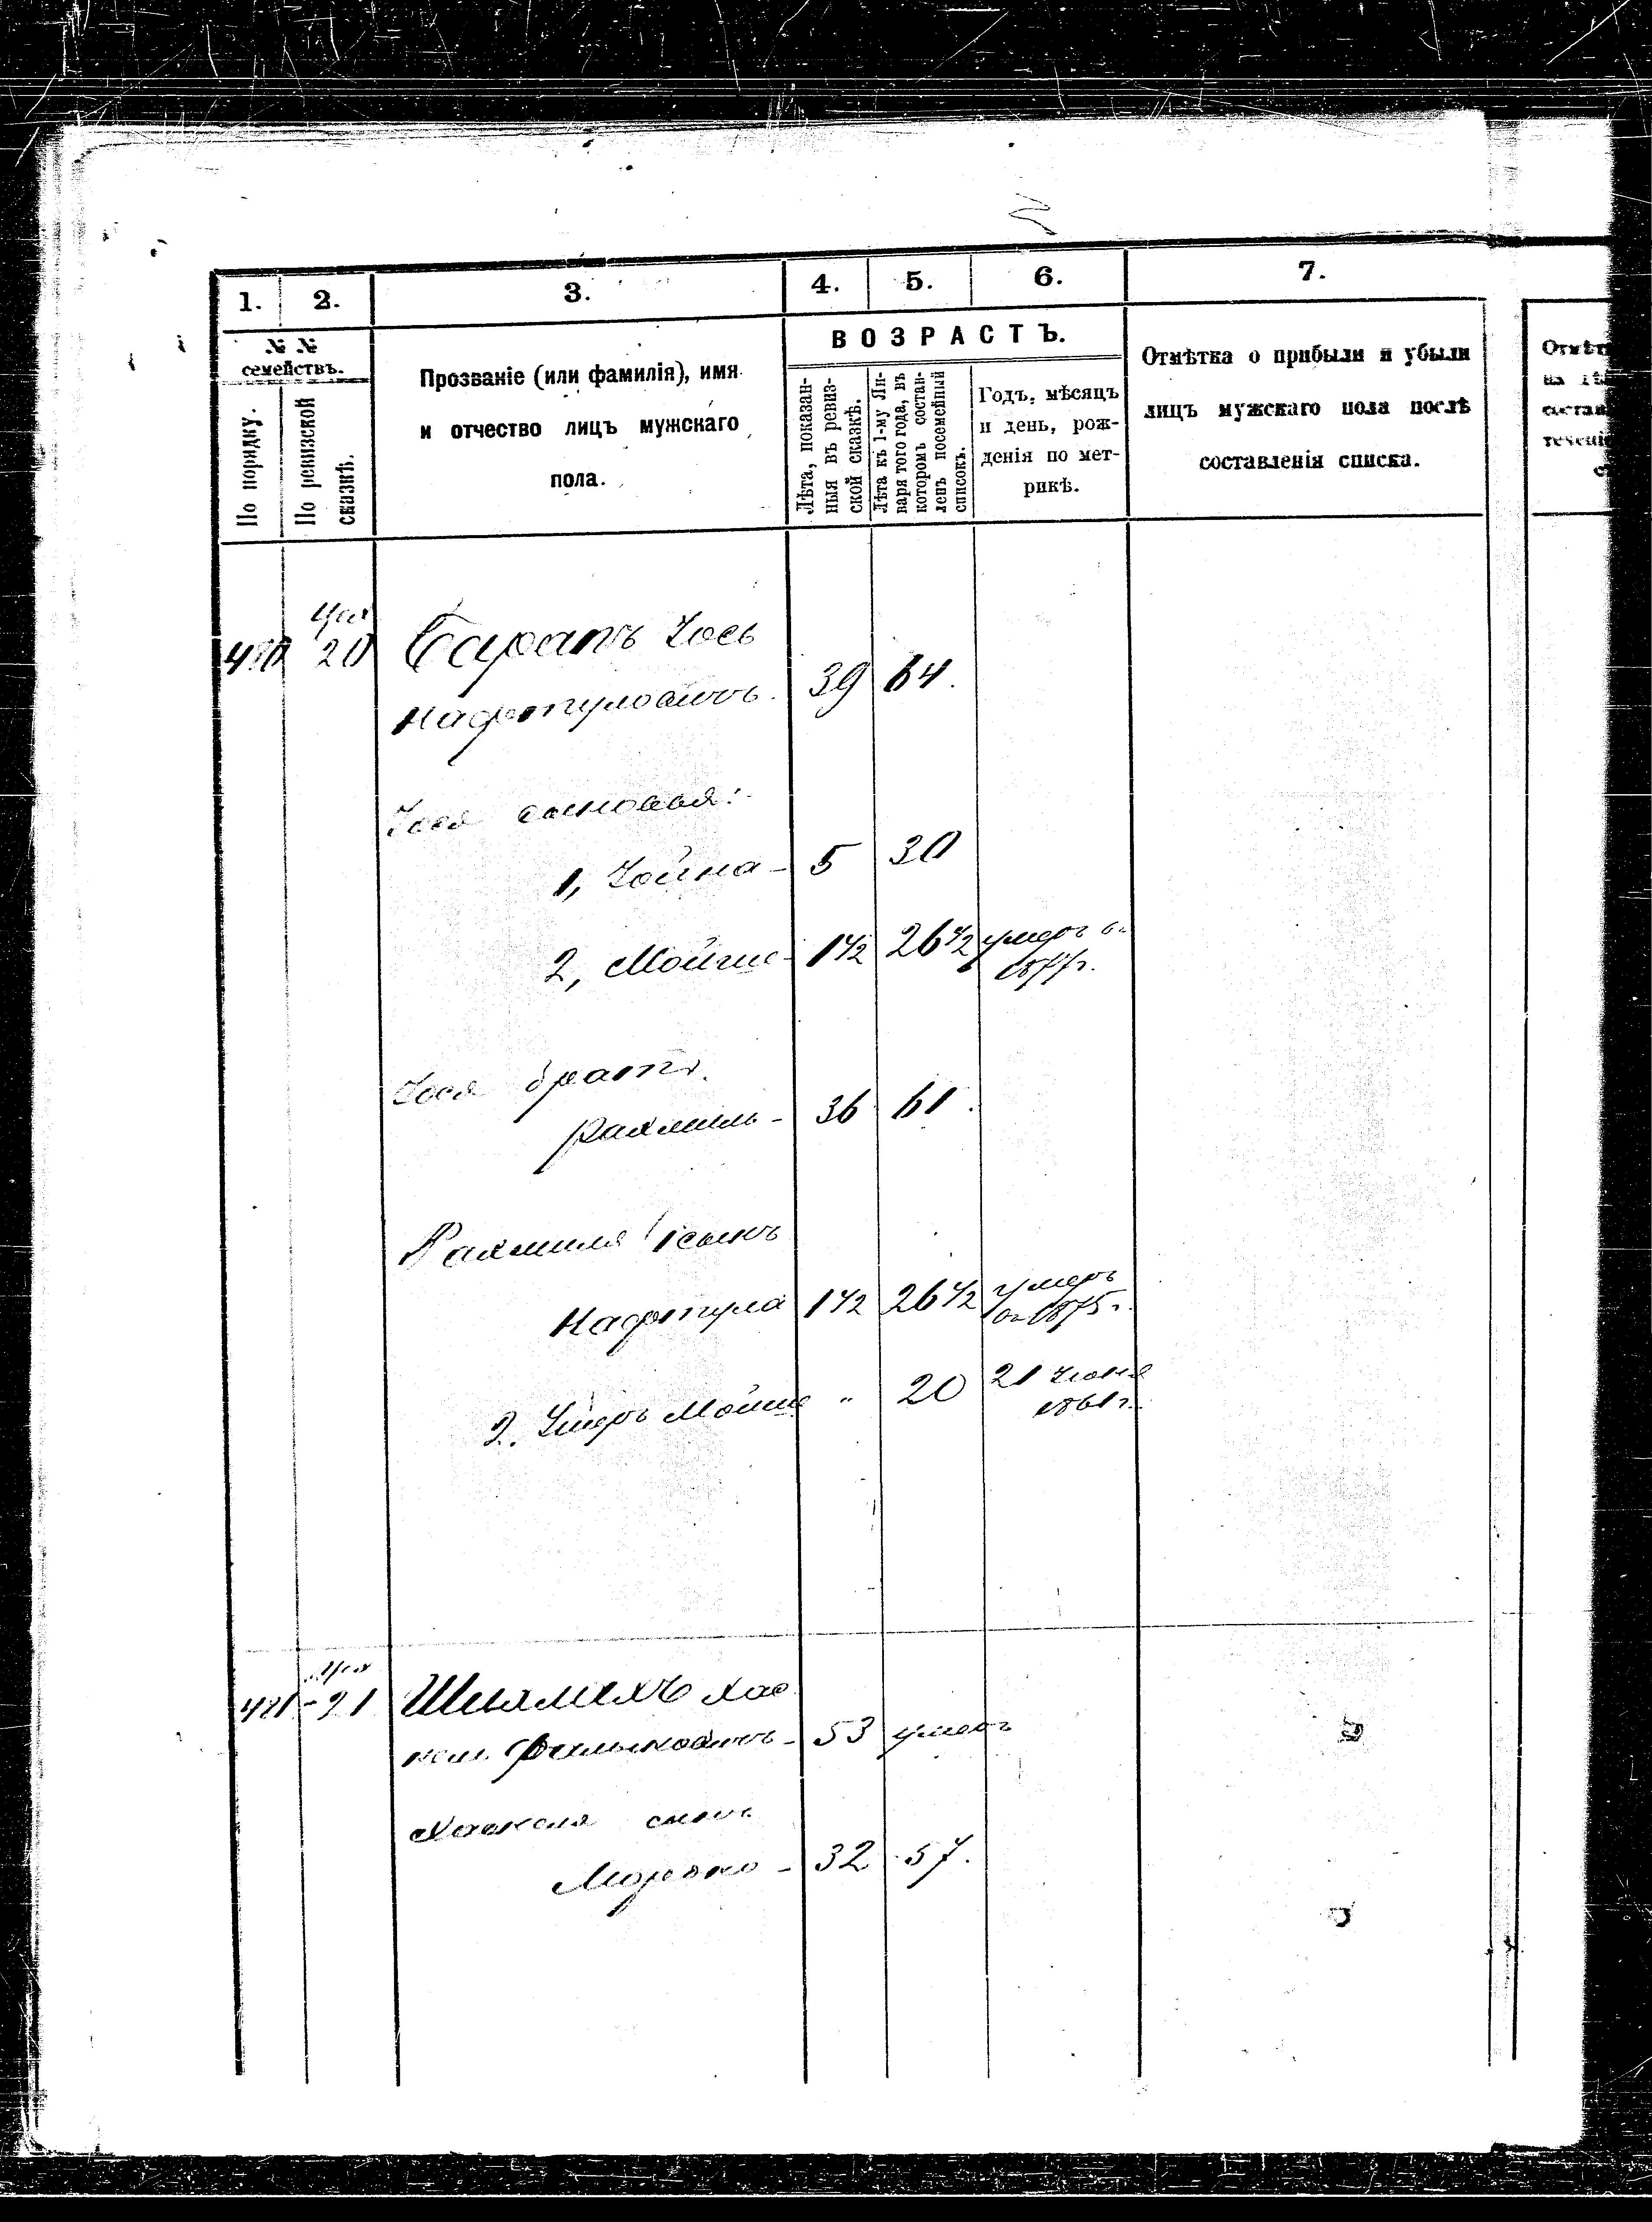 1. 2. 3. 4. 5. 6. 7.
№ №
семействъ.
По порядку.
По ревизской
сказкѣ.
Прозваніе (или фамилія), имя
и отчество лицъ мужскаго
пола.
ВОЗРАСТЪ.
Лѣта, показан-
ныя въ ревиз-
ской сказкѣ.
Лѣта къ 1-му Ян-
варя того года, въ
которомъ состав-
ленъ посемейный
списокъ.
Годъ, мѣсяцъ
и день, рож-
денія по мет-
рикѣ.
Отмѣтка о прибыли и убыли
лицъ мужскаго пола послѣ
составленія списка.
20 Іось
Нафтуловичъ. 39 64.
Іося сыновья:
1, Іойна - 5 30
2, Мойше - 1½ 26½ умеръ въ
1877г.
Іося братъ.
Рахмиль - 36 61.
Рахмиля 1 сынъ
Нафтула 1½ 26½ умеръ
въ 1875г.
2. Мойше " 20 21 Іюня
1861г.
Хас
кель - 53 умеръ
Хаскеля сынъ
Мордко - 32 57.